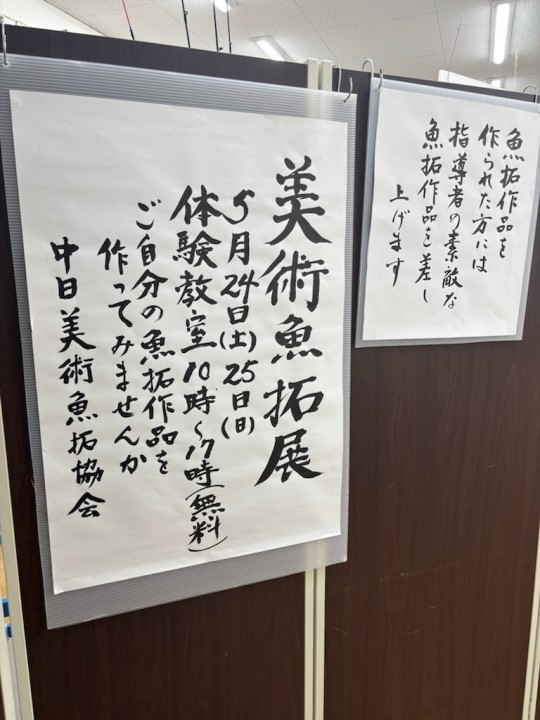 美術魚拓展
5月24日(土)25日(日)
体験教室10時~17時(無料)
ご自分の魚拓作品を
作ってみませんか
中日美術魚拓協会
魚拓作品を
作られた方には
指導者の素敵な
魚拓作品を差し
上げます